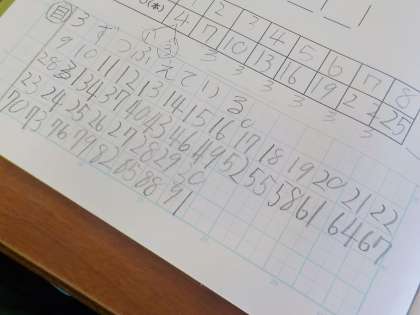 (本) 1 2 3 4 5 6 7 8
4 7 10 13 16 19 22 25
3 3 3 3 3 3 3
① ③
自 3ずつふえている。
9 10 11 12 13 14 15 16 17 18 19 20 21 22
28 31 34 37 40 43 46 49 52 55 58 61 64 67
23 24 25 26 27 28 29 30
70 73 76 79 82 85 88 91